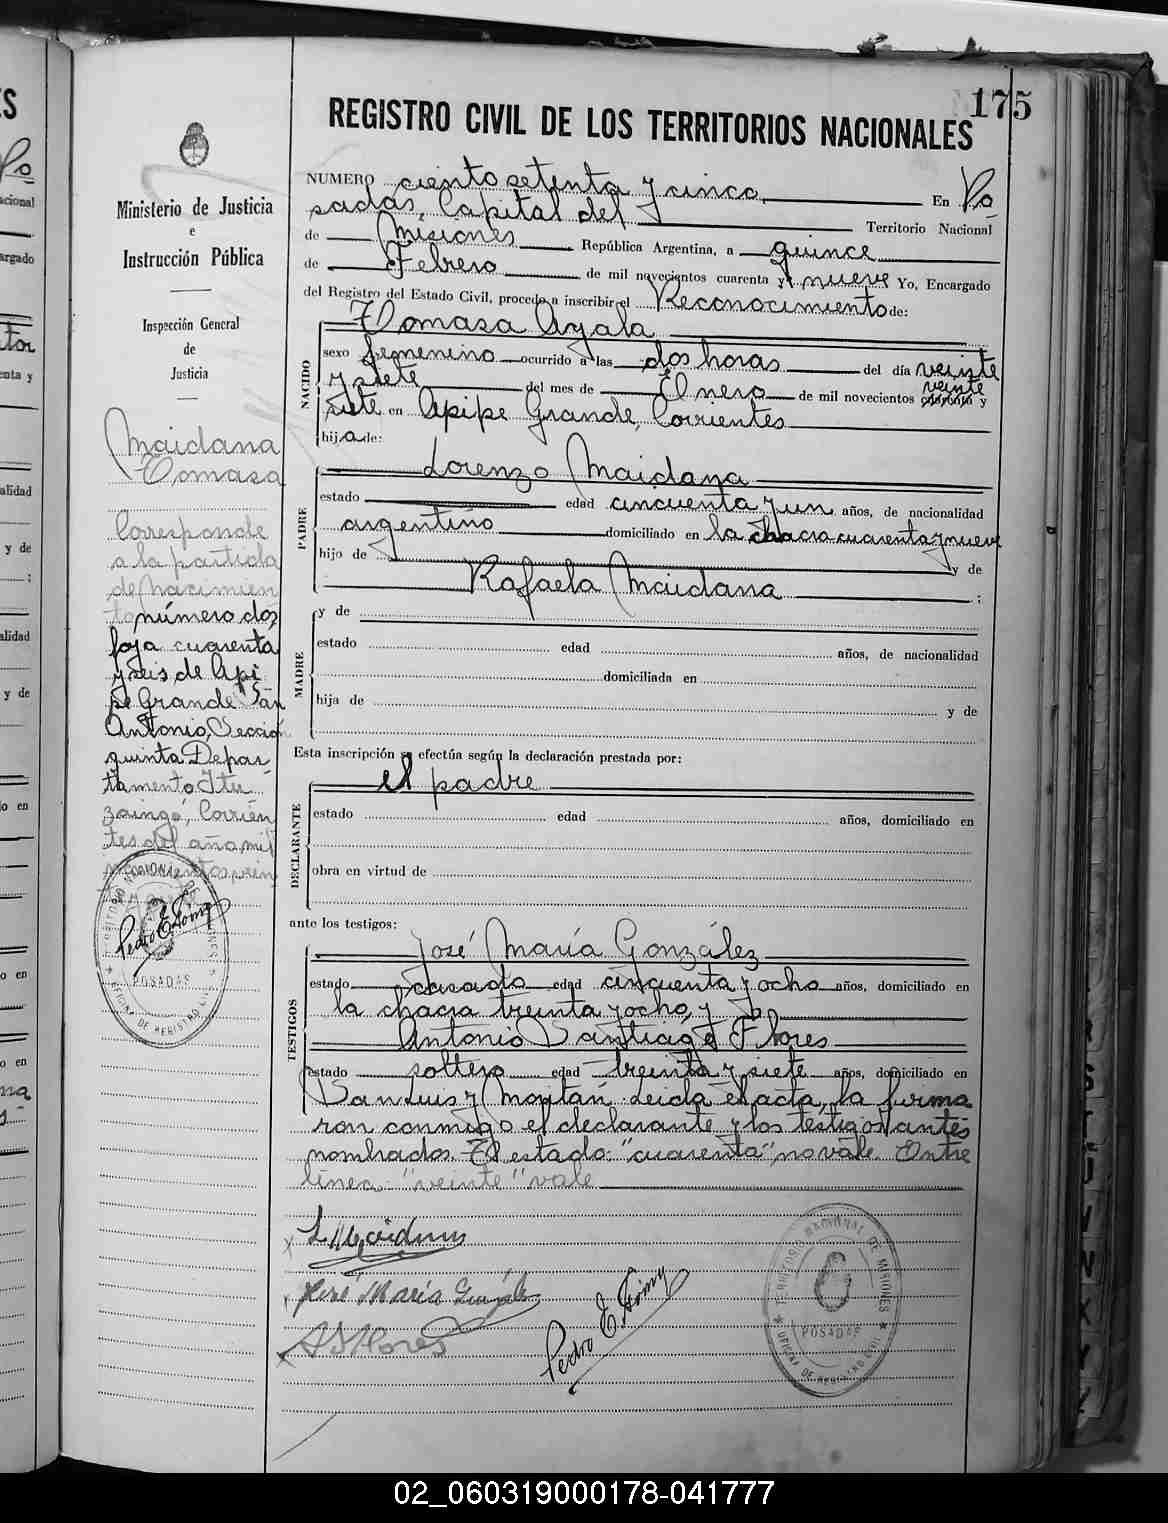 175
REGISTRO CIVIL DE LOS TERRITORIOS NACIONALES
Ministerio de Justicia
e
Instrucción Pública
Inspección General
de
Justicia
Maidana
Tomasa
Corresponde
a la partida
de nacimien
to número dos
foja cuarenta
y seis de Api
pe Grande San
Antonio, Sección
quinta Depar-
tamento Itu
zaingó, Corrien
tes del año mil
novecientos
Pedro E.
POSADAS
OFICINA DE REGISTRO CIVIL
NUMERO ciento setenta y cinco En Po
sadas, Capital del Territorio Nacional
de Misiones República Argentina, a quince
de Febrero de mil novecientos cuarenta y nueve Yo, Encargado
del Registro del Estado Civil, procedo a inscribir el Reconocimiento de:
Tomasa Ayala
NACIDO
sexo femenino ocurrido a las dos horas del día veinte
y siete del mes de Enero de mil novecientos cuarenta veinte y
siete en Apipe Grande, Corrientes
hija de:
PADRE
Lorenzo Maidana
estado edad cincuenta y un años, de nacionalidad
argentino domiciliado en la chacra cuarenta y nueve
hijo de y de
Rafaela Maidana ;
MADRE
y de
estado edad años, de nacionalidad
domiciliada en
hija de y de
Esta inscripción se efectúa según la declaración prestada por:
DECLARANTE
el padre
estado edad años, domiciliado en
obra en virtud de
ante los testigos:
TESTIGOS
José María González
estado casado edad cincuenta y ocho años, domiciliado en
la chacra treinta y ocho, y
Antonio Santiago Flores
estado soltero edad treinta y siete años, domiciliado en
San Luis y Moritán. Leida el acta, la firma
ron conmigo el declarante y los testigos antes
nombrados. El estado: "cuarenta", no vale. Entre
linea: "veinte" vale
L Maidana
José María González
A S Flores
Pedro E.
TERRITORIO NACIONAL DE MISIONES
POSADAS
OFICINA DE REGISTRO CIVIL
02_060319000178-041777